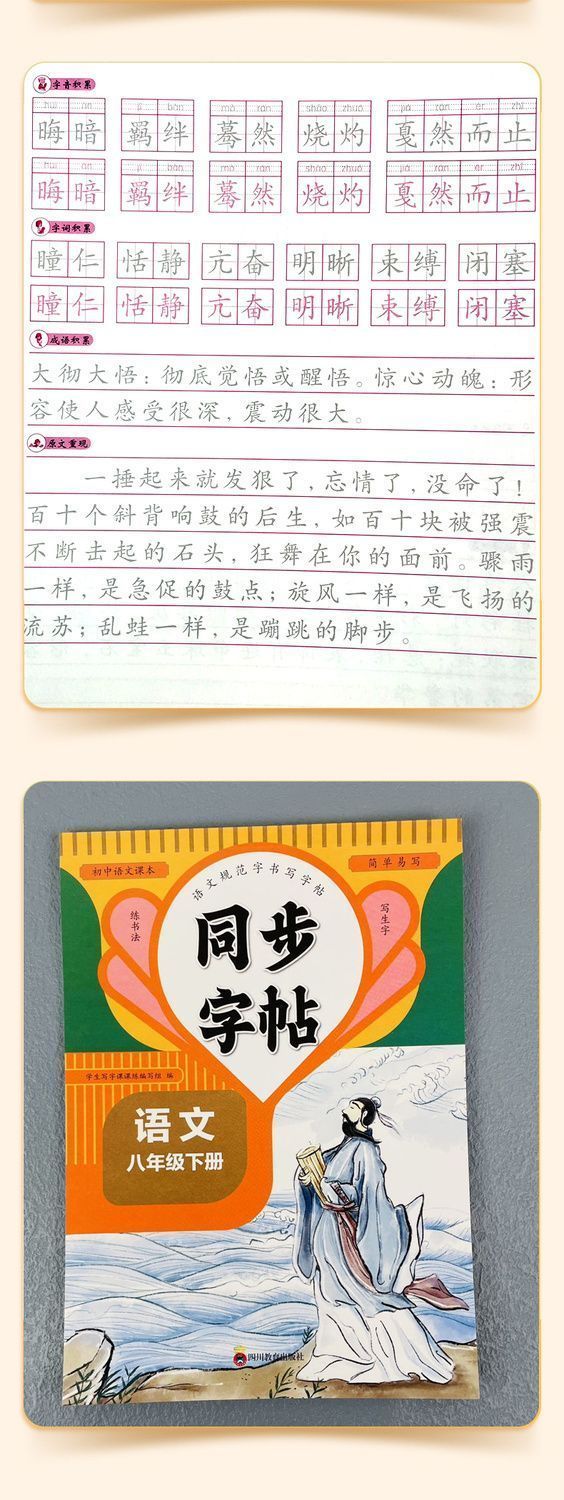 字音积累
huì àn jī bàn mò rán shāo zhuó jiá rán ér zhǐ
晦暗 羁绊 蓦然 烧灼 戛然而止
huì àn jī bàn mò rán shāo zhuó jiá rán ér zhǐ
晦暗 羁绊 蓦然 烧灼 戛然而止
字词积累
瞳仁 恬静 亢奋 明晰 束缚 闭塞
瞳仁 恬静 亢奋 明晰 束缚 闭塞
成语积累
大彻大悟：彻底觉悟或醒悟。惊心动魄：形
容使人感受很深，震动很大。
原文重现
一捶起来就发狠了，忘情了，没命了！
百十个斜背响鼓的后生，如百十块被强震
不断击起的石头，狂舞在你的面前。骤雨
一样，是急促的鼓点；旋风一样，是飞扬的
流苏；乱蛙一样，是蹦跳的脚步。
初中语文课本
语文规范字书写字帖
简单易写
练书法
写生字
同步
字帖
学生写字课课练编写组 编
语文
八年级下册
四川教育出版社